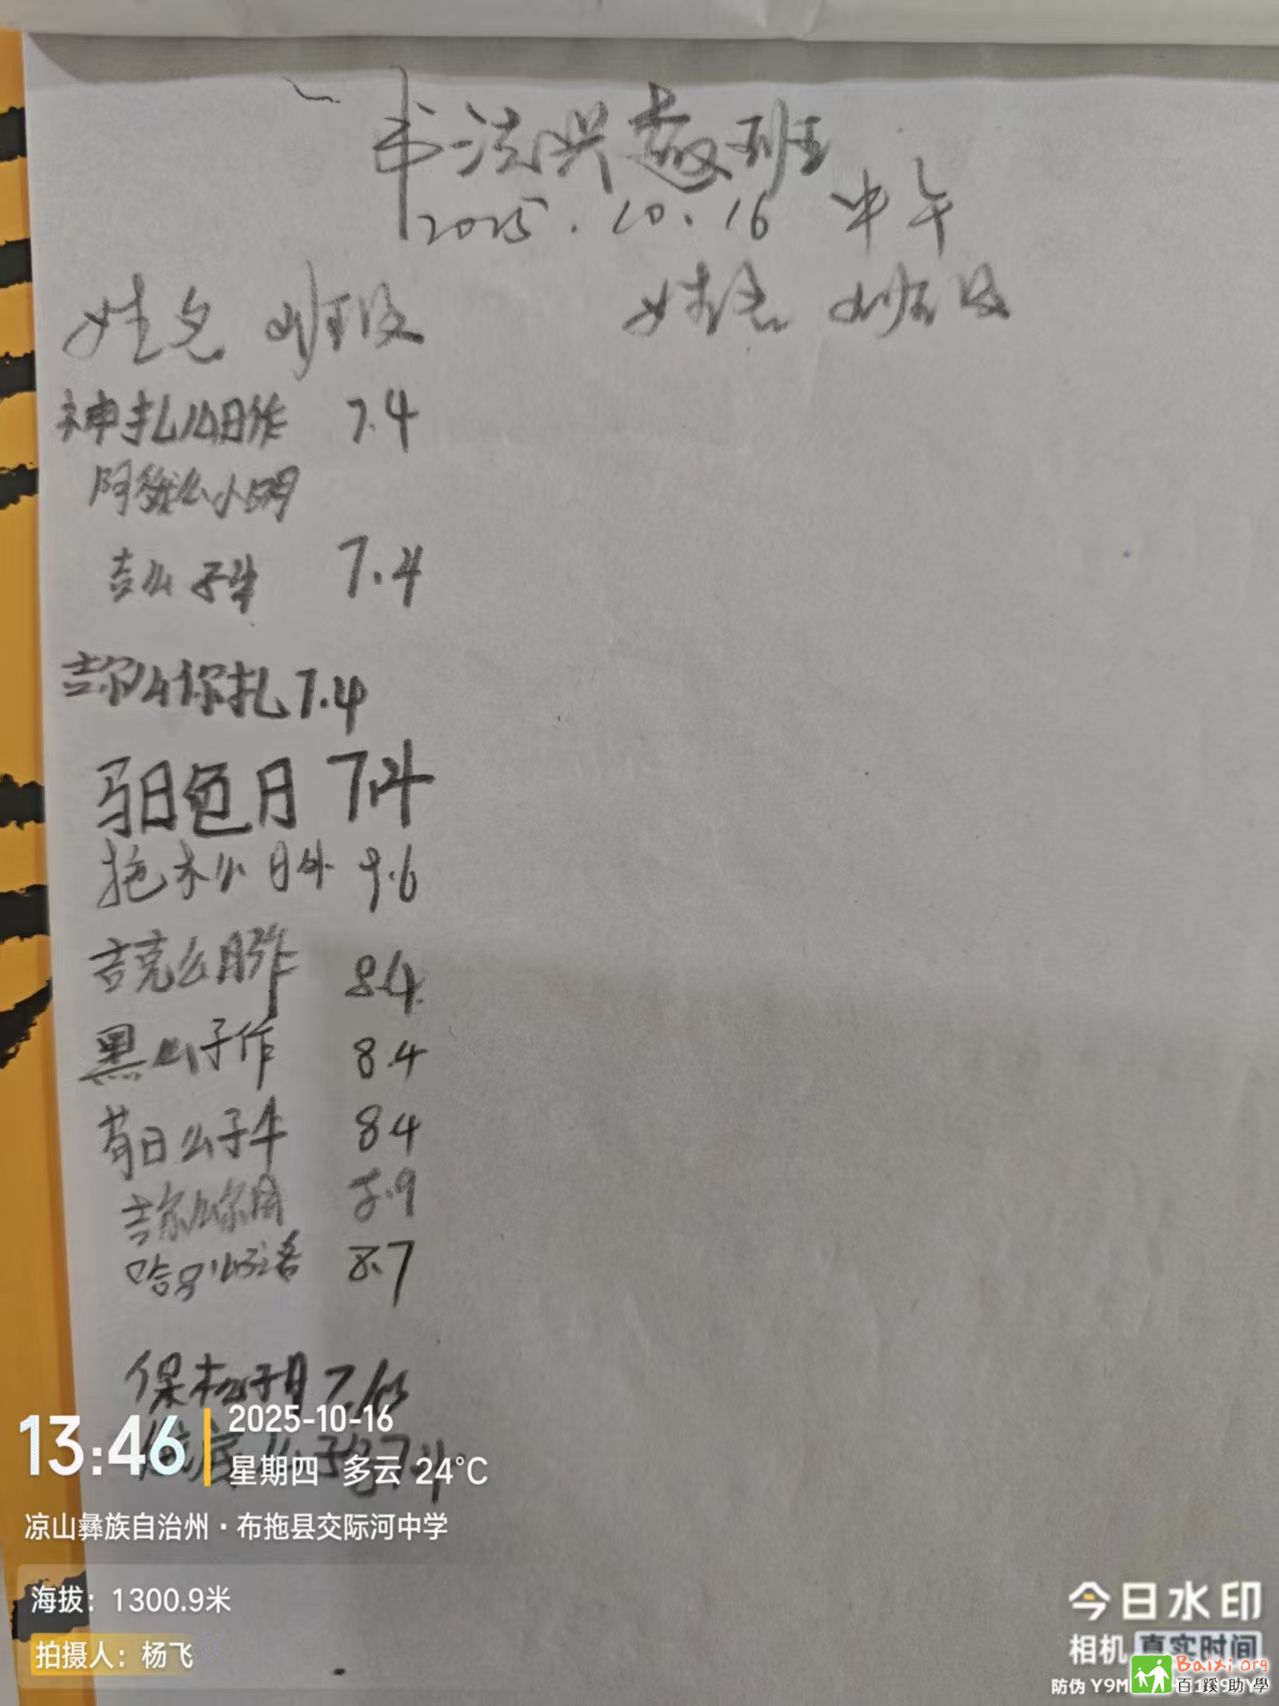 书法兴趣班
2025.10.16 中午
姓名 班级 姓名 班级
神扎么日作 7.4
阿 么小明
吉么子牛 7.4
吉尔么你扎 7.4
日色月 7.4
拖木么日外 9.6
吉克么月作 8.4
黑么子作 8.4
日么子牛 8.4
吉尔么尔 8.9
哈 8.7
保木么子月 7.
么子 7.4
13:46
2025-10-16
星期四 多云 24°C
凉山彝族自治州·布拖县交际河中学
海拔：1300.9米
拍摄人：杨飞
今日水印
相机 真实时间
防伪 Y9M
Baixi.org
百蹊助學